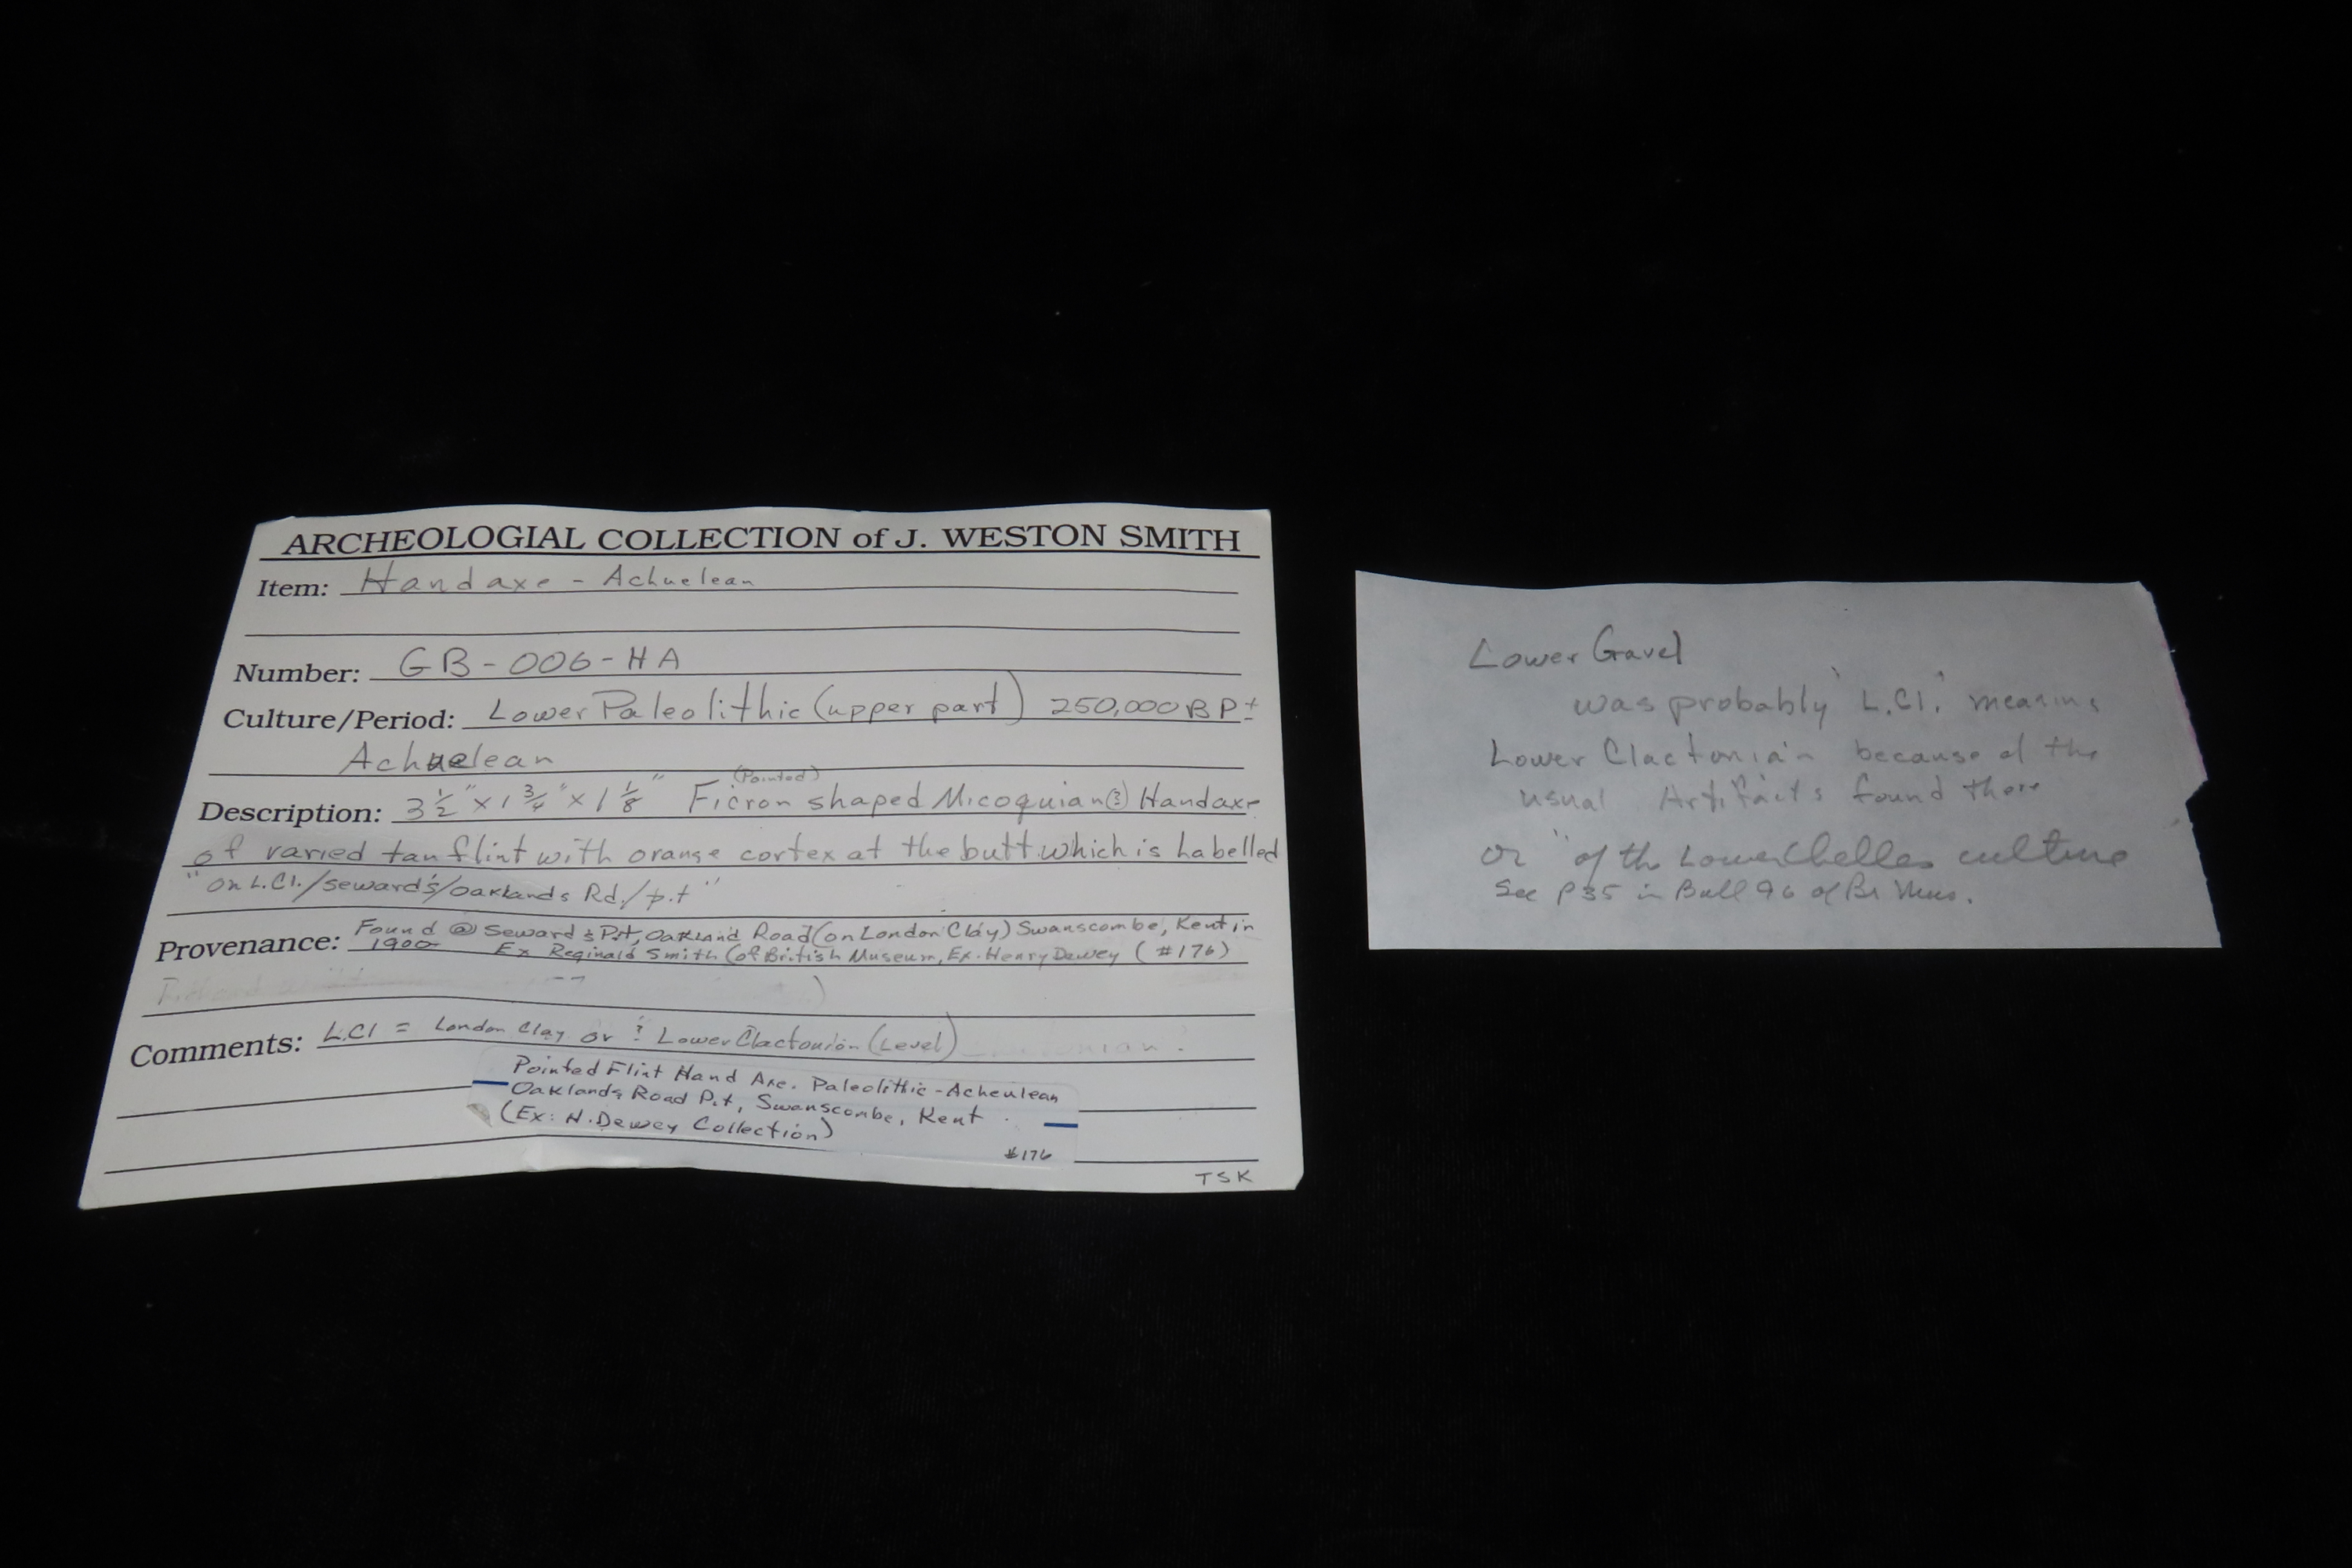 ARCHEOLOGIAL COLLECTION of J. WESTON SMITH
Item: Handaxe - Achuelean
Number: GB-006-HA
Culture/Period: Lower Paleolithic (upper part) 250,000 BP±
Achuelean
(Pointed)
Description: 3 1/2" x 1 3/4" x 1 1/8" Ficron shaped Micoquian(?) Handaxe
of varied tan flint with orange cortex at the butt which is labelled
"on L.Cl./Seward's/Oaklands Rd./pit"
Provenance: Found @ Seward's Pit, Oakland Road (on London Clay) Swanscombe, Kent in
1900 Ex Reginald Smith (of British Museum, Ex. Henry Dewey (#176)
Comments: L.Cl = London Clay or ? Lower Clactonion (Level)
Pointed Flint Hand Axe. Paleolithic - Acheulean
Oaklands Road Pit, Swanscombe, Kent
(Ex: H. Dewey Collection)
#176
TSK
Lower Gravel
was probably "L.Cl." meaning
Lower Clactonian because of the
usual Artifacts found there
or "of the Lower Chelles culture
See p35 in Bull 96 of Br Mus.